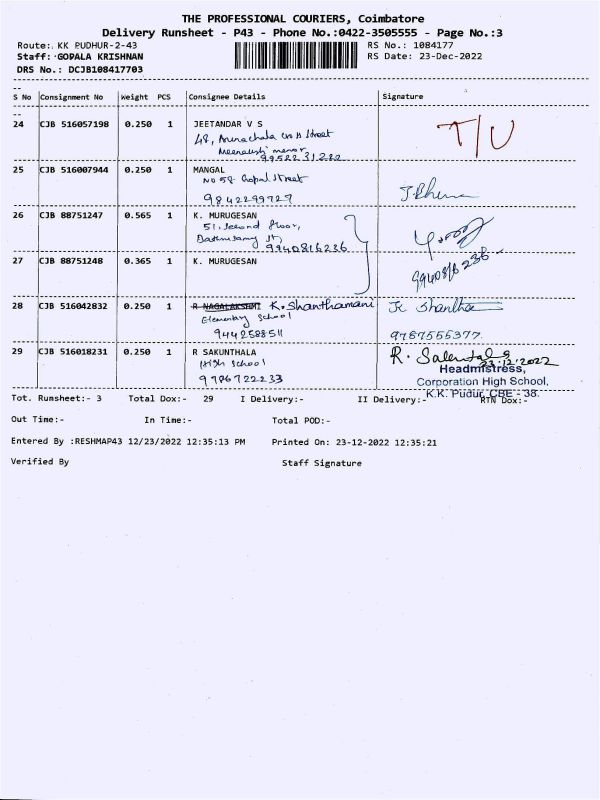 THE PROFESSIONAL COURIERS, Coimbatore
Delivery Runsheet - P43 - Phone No.:0422-3505555 - Page No.:3
Route:. KK PUDHUR-2-43 RS No.: 1084177
Staff: GOPALA KRISHNAN RS Date: 23-Dec-2022
DRS No.: DCJB108417703
S No Consignment No Weight PCS Consignee Details Signature
24 CJB 516057198 0.250 1 JEETANDAR V S T/U
48, Street
25 CJB 516007944 0.250 1 MANGAL
No 58 Gopal Street
9842299727
26 CJB 88751247 0.565 1 K. MURUGESAN
51, Second floor,
9940816236
9940816236
27 CJB 88751248 0.365 1 K. MURUGESAN
28 CJB 516042832 0.250 1 R NAGALAKSHMI K. Shanthamani K Shantha
Elementary School
9442588511 9787555377
29 CJB 516018231 0.250 1 R SAKUNTHALA R.
High School 23.12.2022
9786722233 Headmistress,
Corporation High School,
K.K. Pudur, CBE - 38.
Tot. Runsheet:- 3 Total Dox:- 29 I Delivery:- II Delivery:- RTN Dox:-
Out Time:- In Time:- Total POD:-
Entered By :RESHMAP43 12/23/2022 12:35:13 PM Printed On: 23-12-2022 12:35:21
Verified By Staff Signature